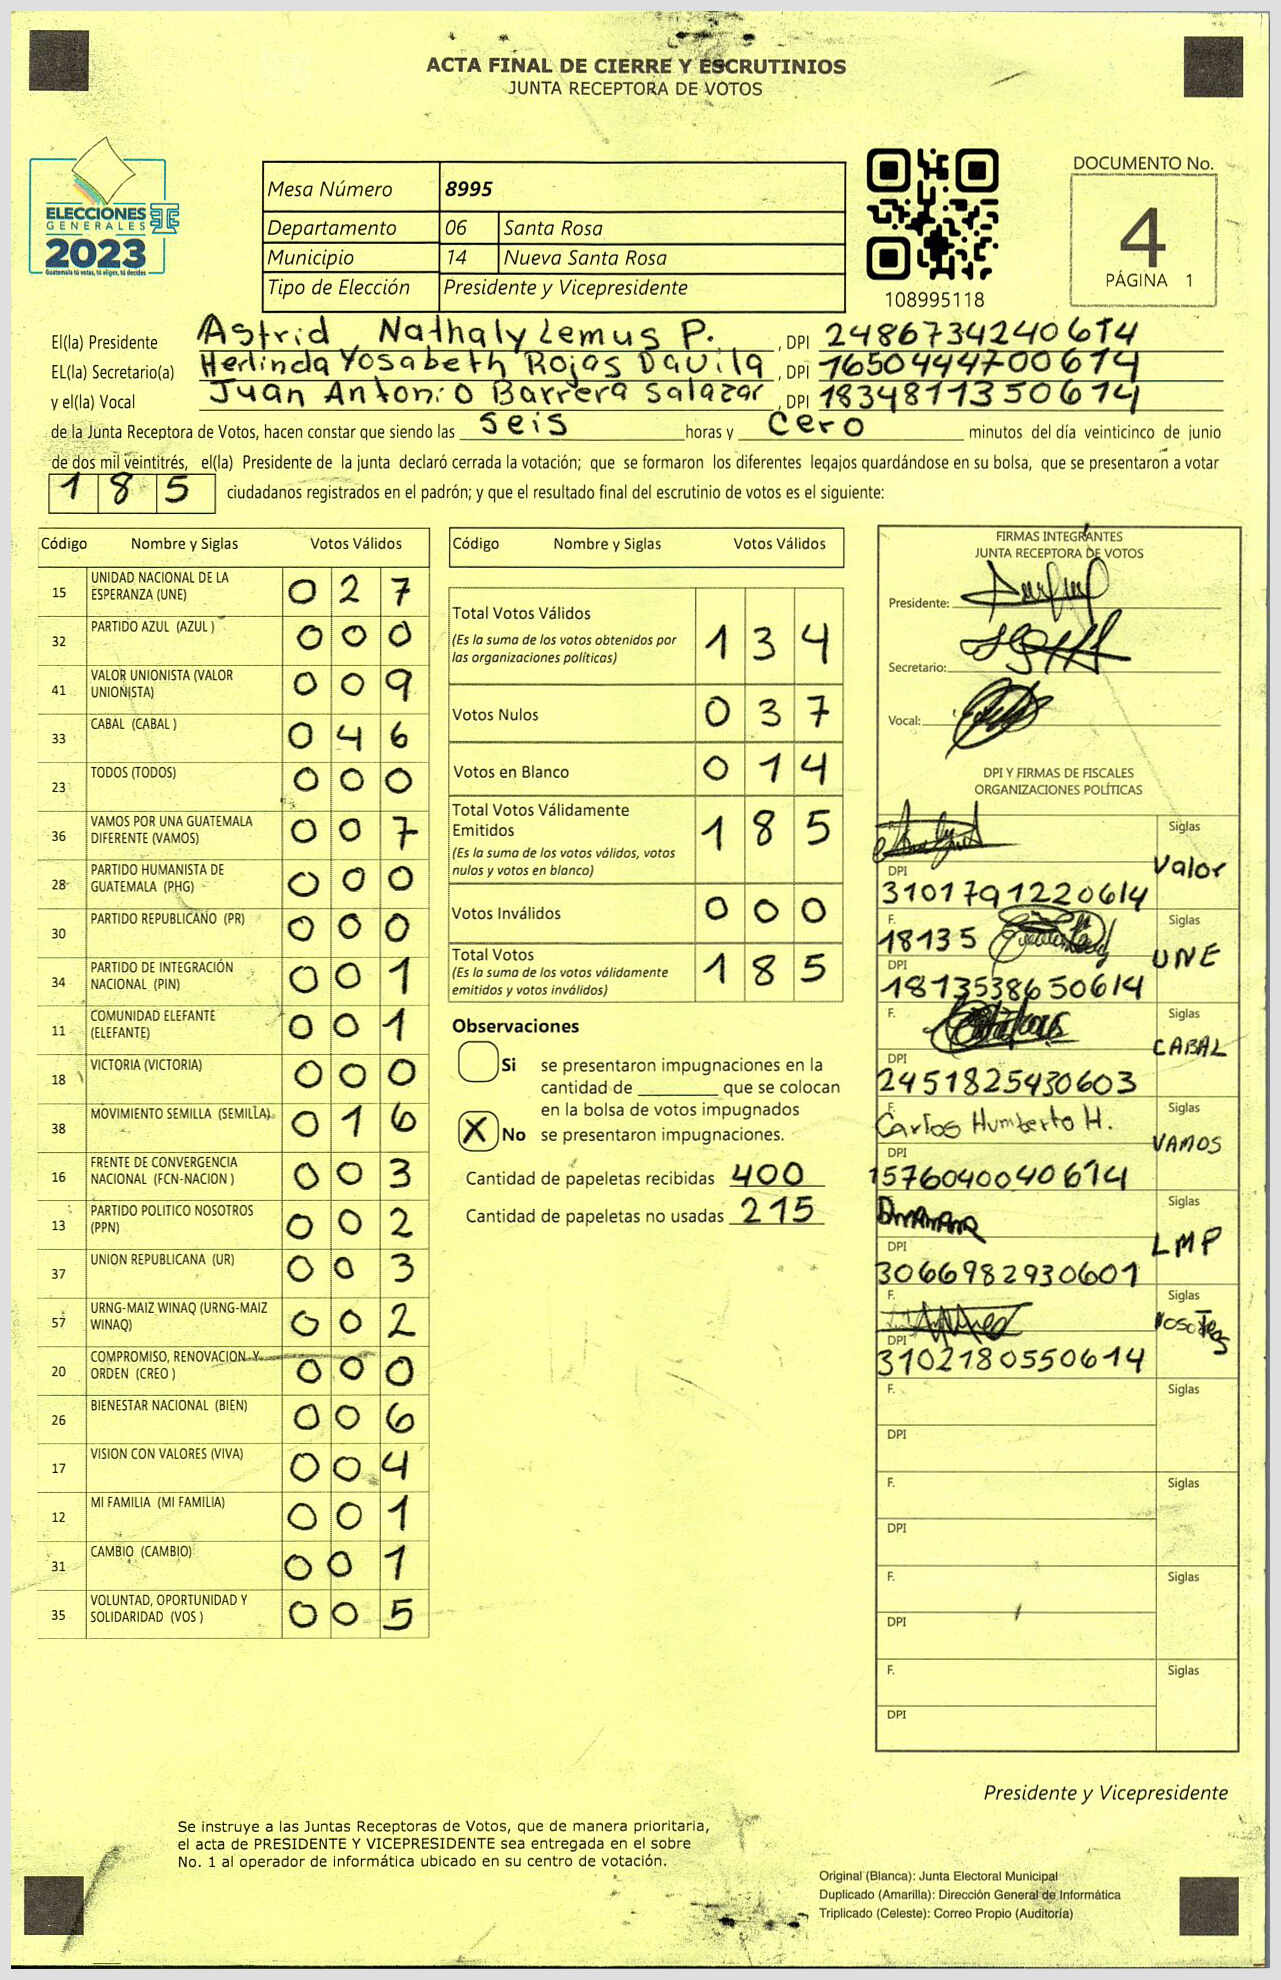 ACTA FINAL DE CIERRE Y ESCRUTINIOS
JUNTA RECEPTORA DE VOTOS
ELECCIONES
GENERALES
2023
Guatemala tú votas, tú eliges, tú decides
Mesa Número 8995
Departamento 06 Santa Rosa
Municipio 14 Nueva Santa Rosa
Tipo de Elección Presidente y Vicepresidente
108995118
DOCUMENTO No.
4
PÁGINA 1
El(la) Presidente Astrid Nathaly Lemus P. , DPI 2486734240614
EL(la) Secretario(a) Herlinda Yosabeth Rojas Davila , DPI 1650444700614
y el(la) Vocal Juan Antonio Barrera Salazar , DPI 1834811350614
de la Junta Receptora de Votos, hacen constar que siendo las seis horas y cero minutos del día veinticinco de junio
de dos mil veintitrés, el(la) Presidente de la junta declaró cerrada la votación; que se formaron los diferentes legajos guardándose en su bolsa, que se presentaron a votar
185 ciudadanos registrados en el padrón; y que el resultado final del escrutinio de votos es el siguiente:
Código Nombre y Siglas Votos Válidos
15 UNIDAD NACIONAL DE LA ESPERANZA (UNE) 027
32 PARTIDO AZUL (AZUL ) 000
41 VALOR UNIONISTA (VALOR UNIONISTA) 009
33 CABAL (CABAL ) 046
23 TODOS (TODOS) 000
36 VAMOS POR UNA GUATEMALA DIFERENTE (VAMOS) 007
28 PARTIDO HUMANISTA DE GUATEMALA (PHG) 000
30 PARTIDO REPUBLICANO (PR) 000
34 PARTIDO DE INTEGRACIÓN NACIONAL (PIN) 001
11 COMUNIDAD ELEFANTE (ELEFANTE) 001
18 VICTORIA (VICTORIA) 000
38 MOVIMIENTO SEMILLA (SEMILLA) 016
16 FRENTE DE CONVERGENCIA NACIONAL (FCN-NACION ) 003
13 PARTIDO POLITICO NOSOTROS (PPN) 002
37 UNION REPUBLICANA (UR) 003
57 URNG-MAIZ WINAQ (URNG-MAIZ WINAQ) 002
20 COMPROMISO, RENOVACION Y ORDEN (CREO ) 000
26 BIENESTAR NACIONAL (BIEN) 006
17 VISION CON VALORES (VIVA) 004
12 MI FAMILIA (MI FAMILIA) 001
31 CAMBIO (CAMBIO) 001
35 VOLUNTAD, OPORTUNIDAD Y SOLIDARIDAD (VOS ) 005
Código Nombre y Siglas Votos Válidos
Total Votos Válidos 134
(Es la suma de los votos obtenidos por
las organizaciones políticas)
Votos Nulos 037
Votos en Blanco 014
Total Votos Válidamente
Emitidos 185
(Es la suma de los votos válidos, votos
nulos y votos en blanco)
Votos Inválidos 000
Total Votos 185
(Es la suma de los votos válidamente
emitidos y votos inválidos)
Observaciones
Si se presentaron impugnaciones en la
cantidad de ________ que se colocan
en la bolsa de votos impugnados
X No se presentaron impugnaciones.
Cantidad de papeletas recibidas 400
Cantidad de papeletas no usadas 215
FIRMAS INTEGRANTES
JUNTA RECEPTORA DE VOTOS
Presidente:
Secretario:
Vocal:
DPI Y FIRMAS DE FISCALES
ORGANIZACIONES POLÍTICAS
F. Siglas
Valor
DPI
3101791220614
F. 18135 Siglas
UNE
DPI
1813538650614
F. Siglas
CABAL
DPI
2451825430603
F. Carlos Humberto H. Siglas
VAMOS
DPI
1576040040614
Siglas
LMP
DPI
3066982930601
F. Siglas
Nosotros
DPI
3102180550614
F. Siglas
DPI
F. Siglas
DPI
F. Siglas
DPI
F. Siglas
DPI
Presidente y Vicepresidente
Se instruye a las Juntas Receptoras de Votos, que de manera prioritaria,
el acta de PRESIDENTE Y VICEPRESIDENTE sea entregada en el sobre
No. 1 al operador de informática ubicado en su centro de votación.
Original (Blanca): Junta Electoral Municipal
Duplicado (Amarilla): Dirección General de Informática
Triplicado (Celeste): Correo Propio (Auditoría)